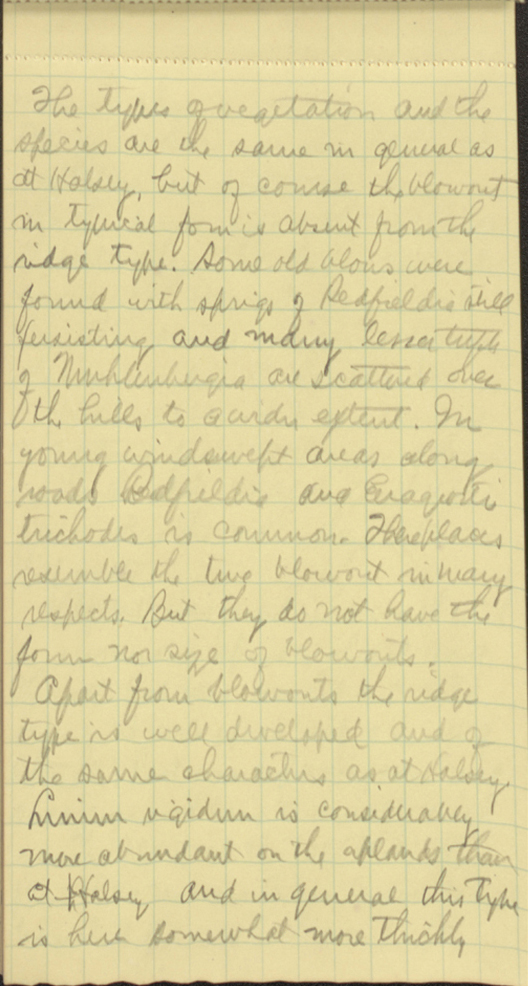 The types of vegetation and the
species are the same in general as
at Halsey, but of course the blowout
in typical form is absent from the
ridge type. Some old blows were
found with sprigs of Redfieldia still
persisting and many lesser tufts
of Muhlenbergia are scattered over
the hills to a wider extent. In
young windswept areas along
roads Redfieldia and Eragrostis
trichodes is common. These places
resemble the true blowout in many
respects. But they do not have the
form nor size of blowouts.
Apart from blowouts the ridge
type is well developed and of
the same characters as at Halsey.
Linum rigidum is considerabley
more abundant on the uplands than
at Halsey and in general this type
is here somewhat more thickly